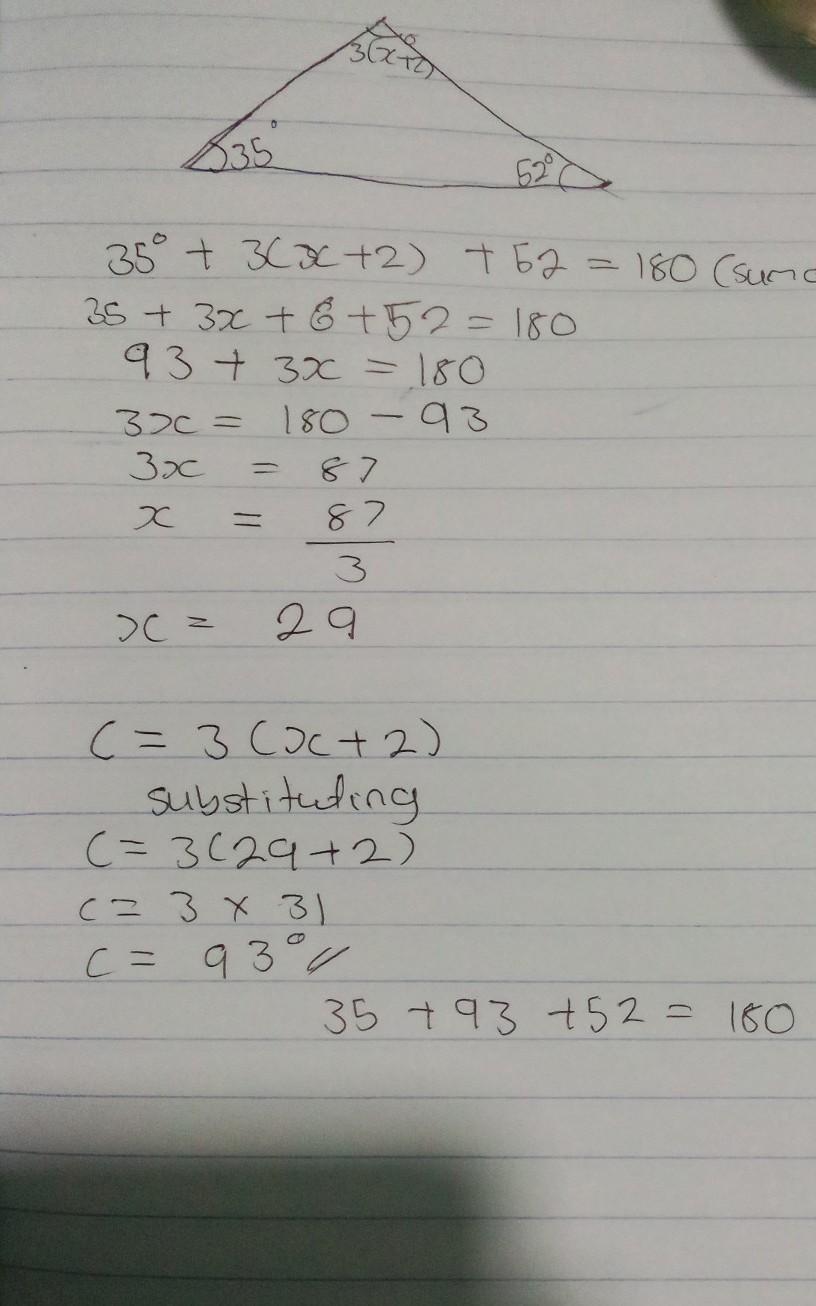 3(x+2)°
35°
52°
35° + 3(x+2) + 52 = 180 (sum
35 + 3x + 6 + 52 = 180
93 + 3x = 180
3x = 180 - 93
3x = 87
x = 87
3
x = 29
C = 3(x+2)
substituting
C = 3(29+2)
C = 3 x 31
C = 93°
35 + 93 + 52 = 180